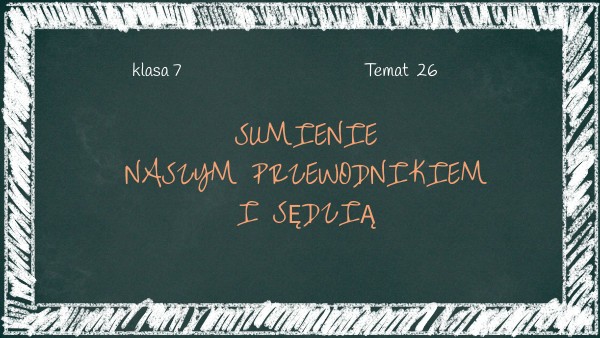 klasa 7 Temat 26
SUMIENIE
NASZYM PRZEWODNIKIEM
I SĘDZIĄ